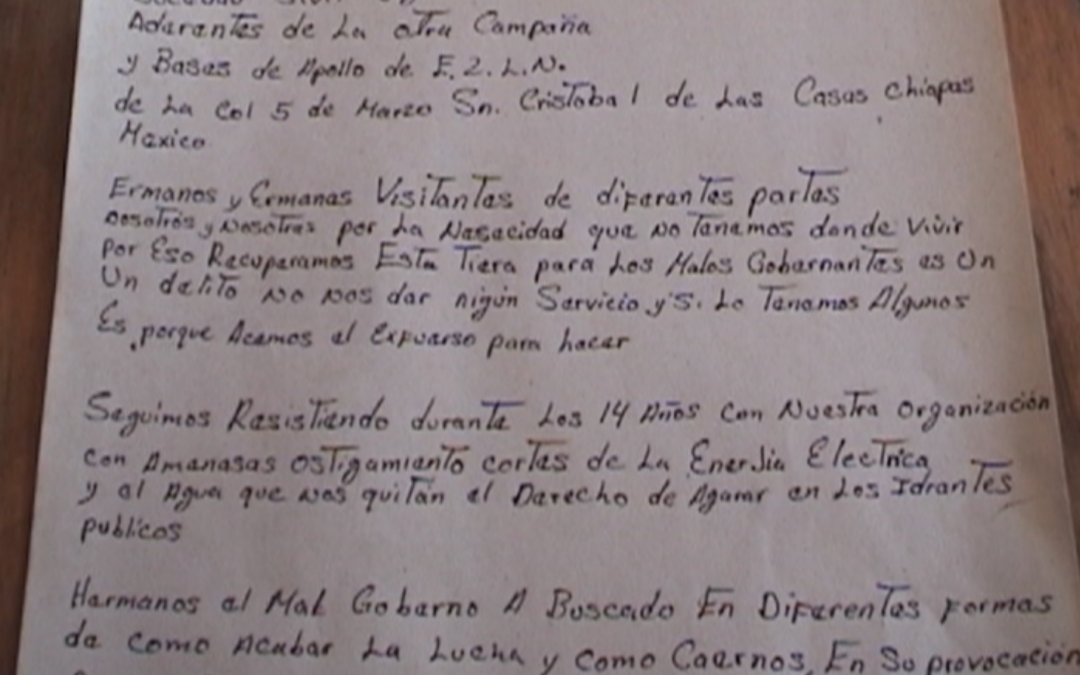 Aderantes de La otra Campaña
y Bases de Apollo de E.Z.L.N.
de La Col 5 de Marzo Sn. Cristobal de Las Casas Chiapas
Mexico
Ermanos y Ermanas Visitantes de diferentes partes
nosotros y nosotras por La Nesecidad que no Tenemos donde Vivir
por Eso Recuperamos Esta Tiera para Los Malos Gobernantes es Un
Un delito no nos dar nigún Servicio y si Lo Tenemos Algunos
Es porque Acemos el Expuerso para hacer
Seguimos Resistiendo durante Los 14 Años Con Nuestra Organización
con Amenasas Ostigamiento cortes de La Enerjia Electrica
y al Agua que nos quitan el Derecho de Agarar en Los Idrantes
publicos
Hermanos el Mal Goberno A Buscado En Diferentes Formas
de como Acabar La Lucha y como Caernos, En Su provocación